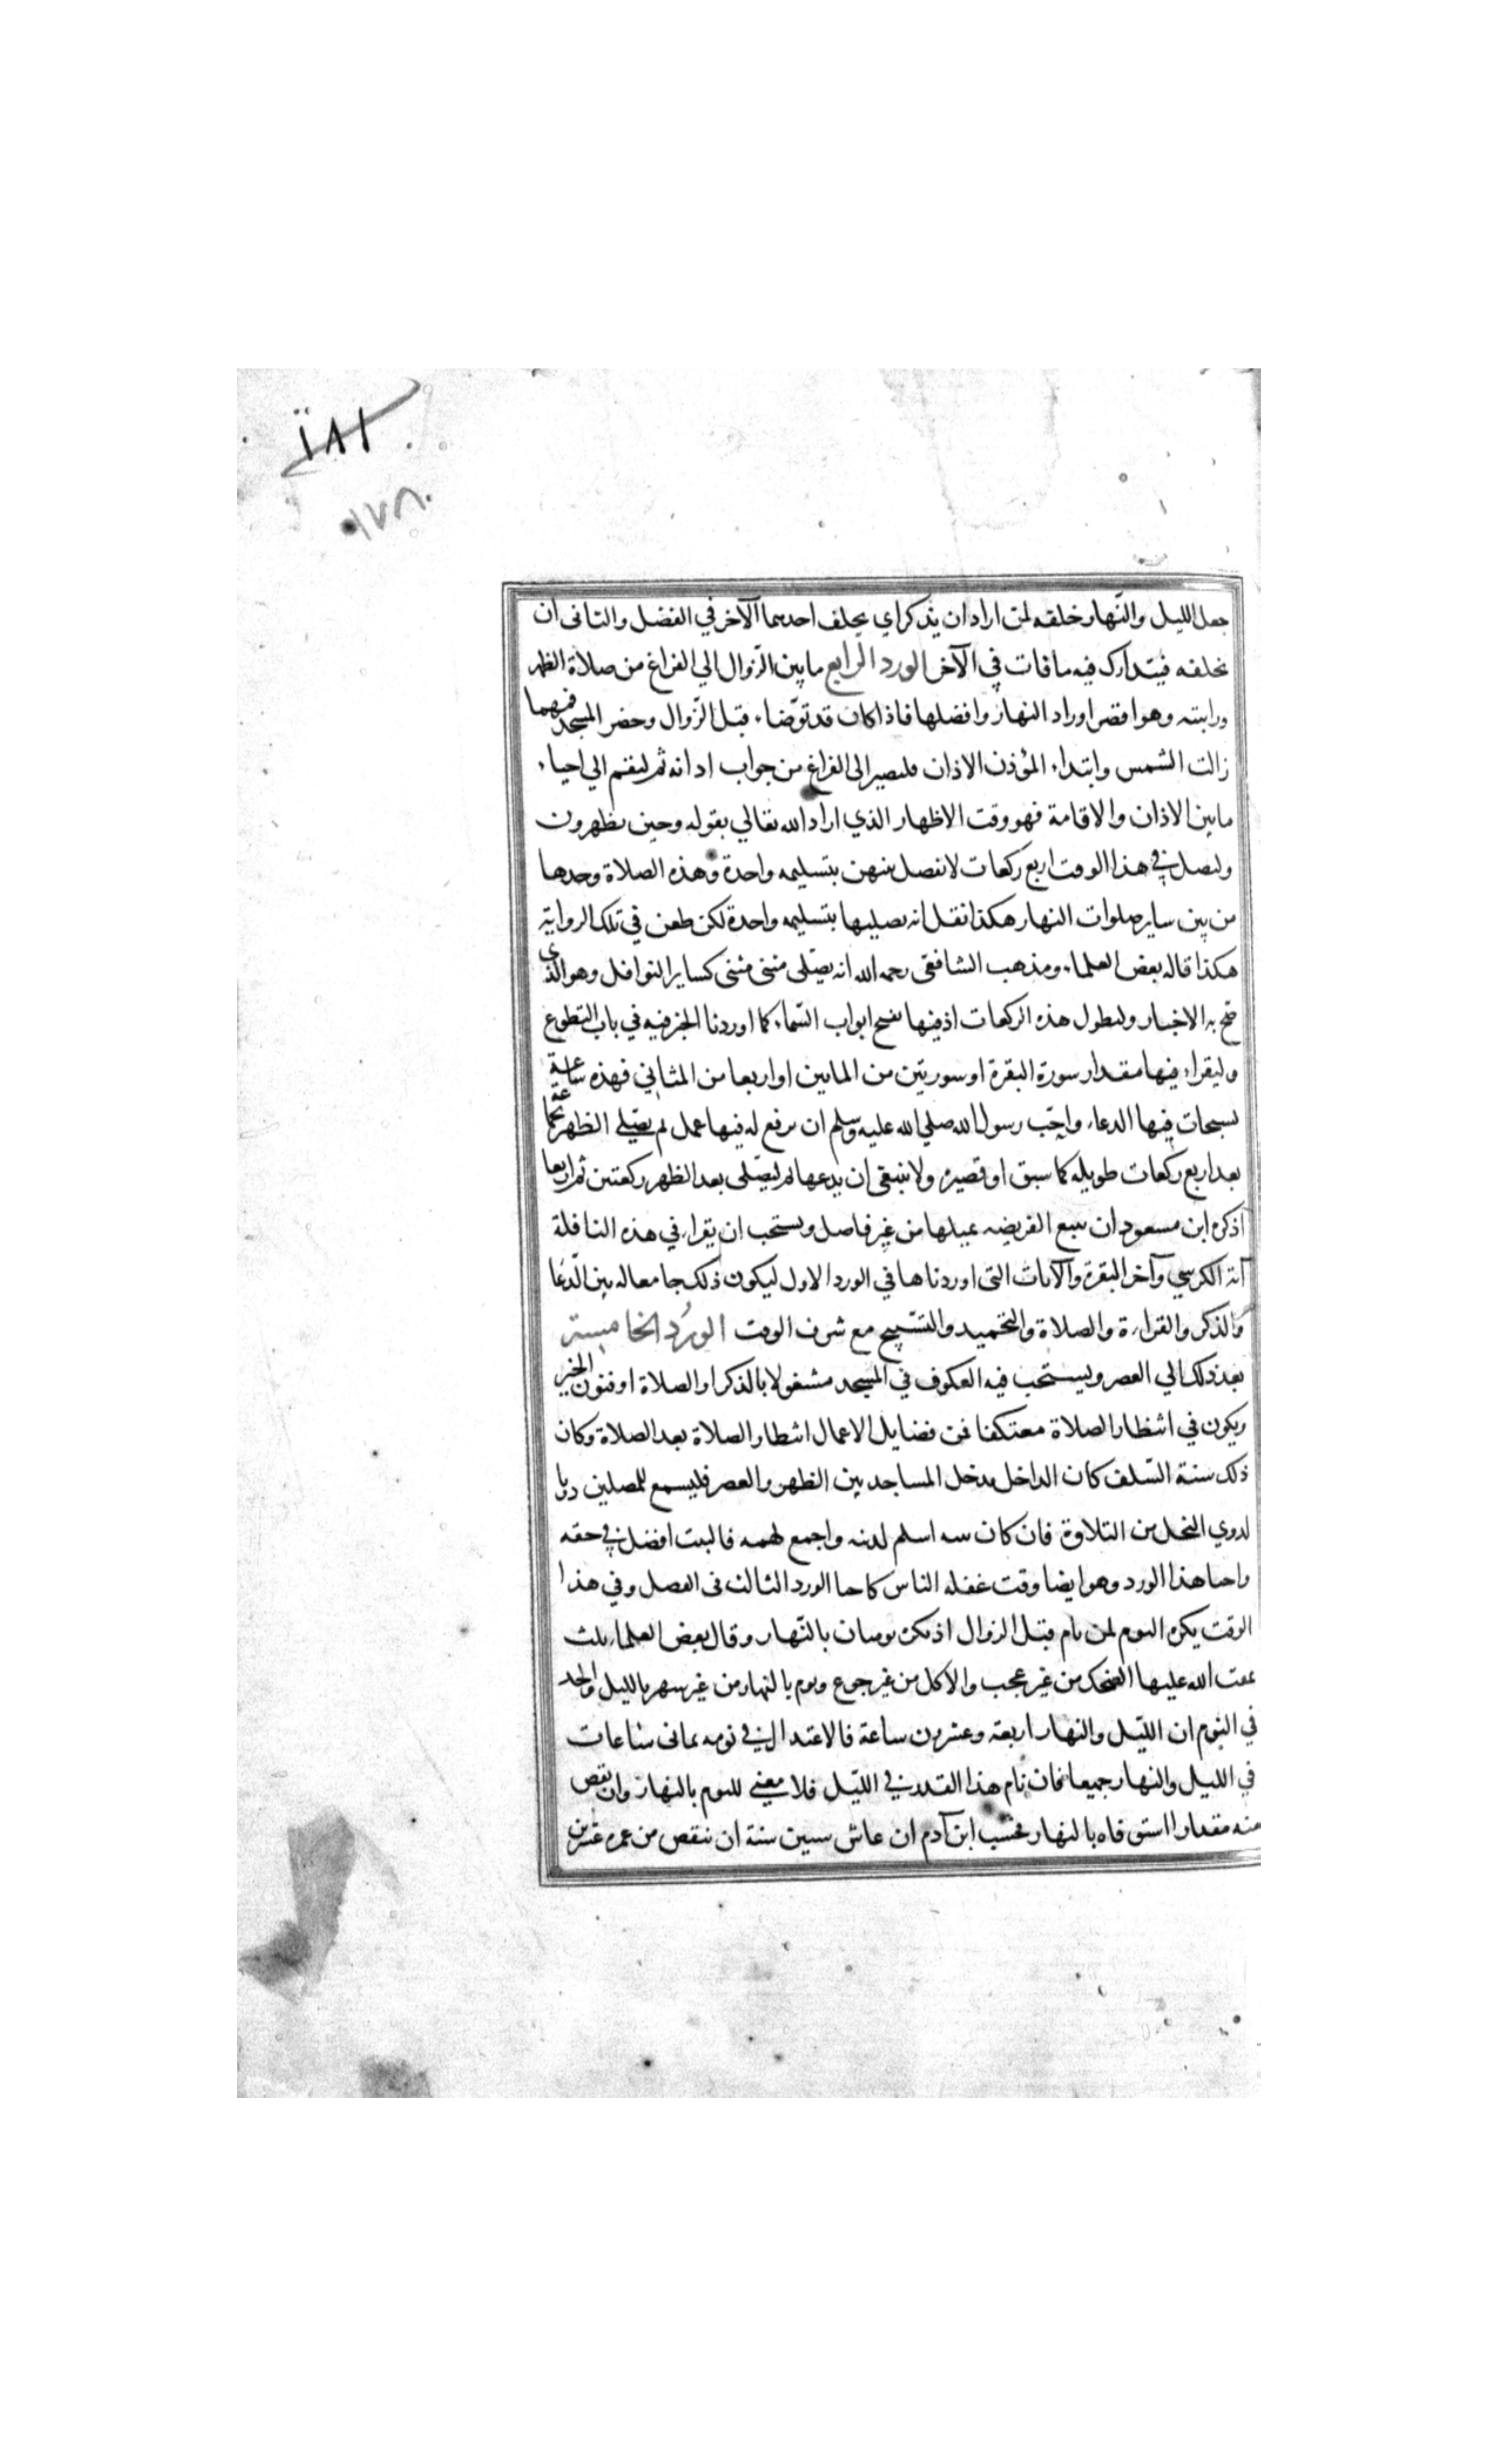 ١٨١
١٧٨
جعل الليل والنّهار خلقه لمن اراد ان يذكر اي يخلف احدهما الآخر في الفضل والثانى ان
يخلفه فيتدارك فيه ما فات في الآخر الورد الرابع ما بين الزّوال الي الفراغ من صلاة الظهر
وراتبته وهو اقصر اوراد النهار وافضلها فاذا كان قد توضّاء قبل الزّوال وحضر المسجد فمهما
زالت الشمس وابتداء المؤذن الاذان فليصبر الى الفراغ من جواب اذانه ثم ليقم الي احياء
ما بين الاذان والاقامة فهو وقت الاظهار الذي اراد الله تعالي بقوله وحين تظهرون
وليصل في هذا الوقت اربع ركعات لا يفصل بينهن بتسليمه واحدة وهذه الصلاة وحدها
من بين ساير صلوات النهار هكذا نقل انه يصليها بتسليمه واحدة لكن طعن في تلك الرواية
هكذا قاله بعض العلماء ومذهب الشافعى رحمه الله انه يصّلى مثنى مثنى كساير النوافل وهو الذي
صّح به الاخبار وليطول هذه الركعات اذ فيها تفتح ابواب السّماء كما اوردنا الخبر فيه في باب التطوع
وليقراء فيها مقدار سورة البقرة او سورتين من المايين او اربعا من المثاني فهذه ساعة
يستجاب فيها الدعاء واحّب رسول الله صلي الله عليه وسلم ان يرفع له فيها عمل ثم يصّلي الظهر بجماعة
بعد اربع ركعات طويله كما سبق او قصيره ولا ينبغى ان يدعها ثم ليصّلى بعد الظهر ركعتين ثم اربعا
اذ كره ابن مسعود ان يتبع الفريضه بمثلها من غير فاصل ويستحب ان يقراء في هذه النافلة
آية الكرسي وآخر البقرة والآيات التى اوردناها في الورد الاول ليكون ذلك جامعا له بين الدّعا
والذكر والقراءة والصلاة والتحميد والتسّبيح مع شرف الوقت الورد الخامس
بعد ذلك الي العصر ويستحب فيه العكوف في المسجد مشغولا بالذكر او الصلاة او فنون الخير
ويكون في انتظار الصلاة معتكفا فمن فضايل الاعمال انتظار الصلاة بعد الصلاة وكان
ذلك سنة السّلف كان الداخل يدخل المساجد بين الظهر والعصر فليسمع للمصلين دويا
لدوي النحل من التلاوة فان كان بيته اسلم لدينه واجمع لهمه فالبيت افضل في حقه
واحيا هذا الورد وهو ايضا وقت غفله الناس كاحيا الورد الثالث فى الفضل وفي هذا
الوقت يكره النوم لمن نام قبل الزوال اذ يكره نومان بالنّهار وقال بعض العلماء ثلث
يمقت الله عليها الضحك من غير عجب والاكل من غير جوع ونوم بالنهار من غير سهر بالليل والحد
في النوم ان الليّل والنهار اربعة وعشرون ساعة فالاعتدال في نومه ثمانى ساعات
في الليل والنهار جميعا فان نام هذا القدر في الليّل فلا معني للنوم بالنهار وان نقص
منه مقدارا استوفاه بالنهار فحسب ابن آدم ان عاش ستين سنة ان ينقص من عمره عشرين